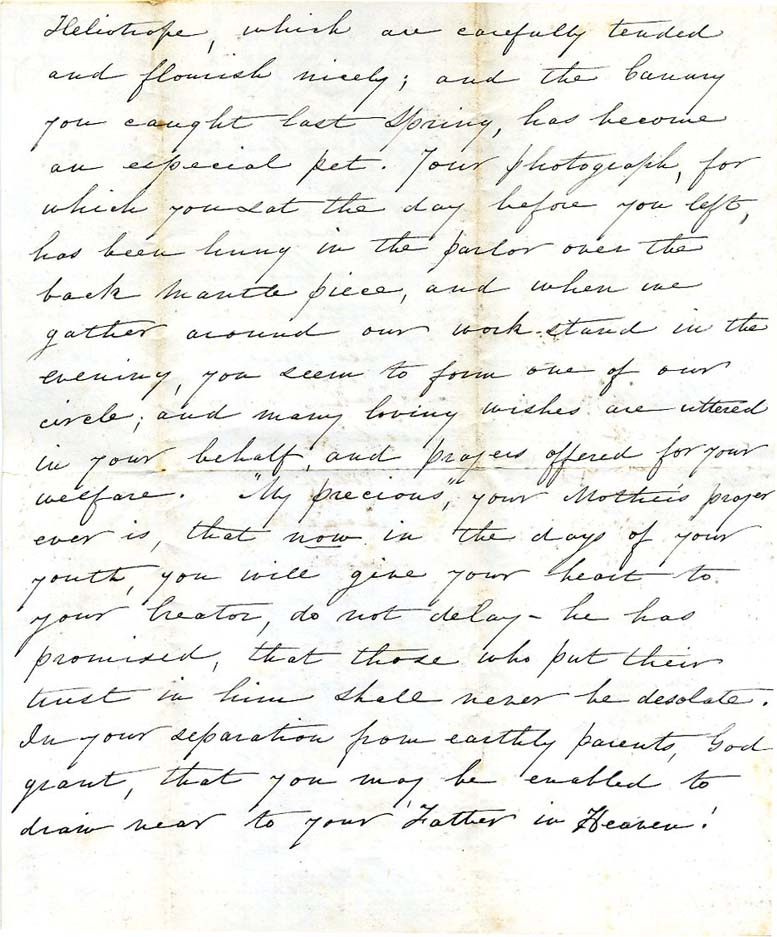 Heliotrope, which are carefully tended
and flourish nicely; and the Canary
you caught last Spring, has become
an especial pet. Your photograph, for
which you sat the day before you left,
has been hung in the parlor over the
back mantle piece, and when we
gather around our work-stand in the
evening, you seem to form one of our
circle; and many loving wishes are uttered
in your behalf, and prayers offered for your
welfare. "My precious", your Mother's prayer
ever is, that now in the days of your
youth, you will give your heart to
your Creator, do not delay - he has
promised, that those who put their
trust in him shall never be desolate.
In your separation from earthly parents, God
grant, that you may be enabled to
draw near to your Father in Heaven!